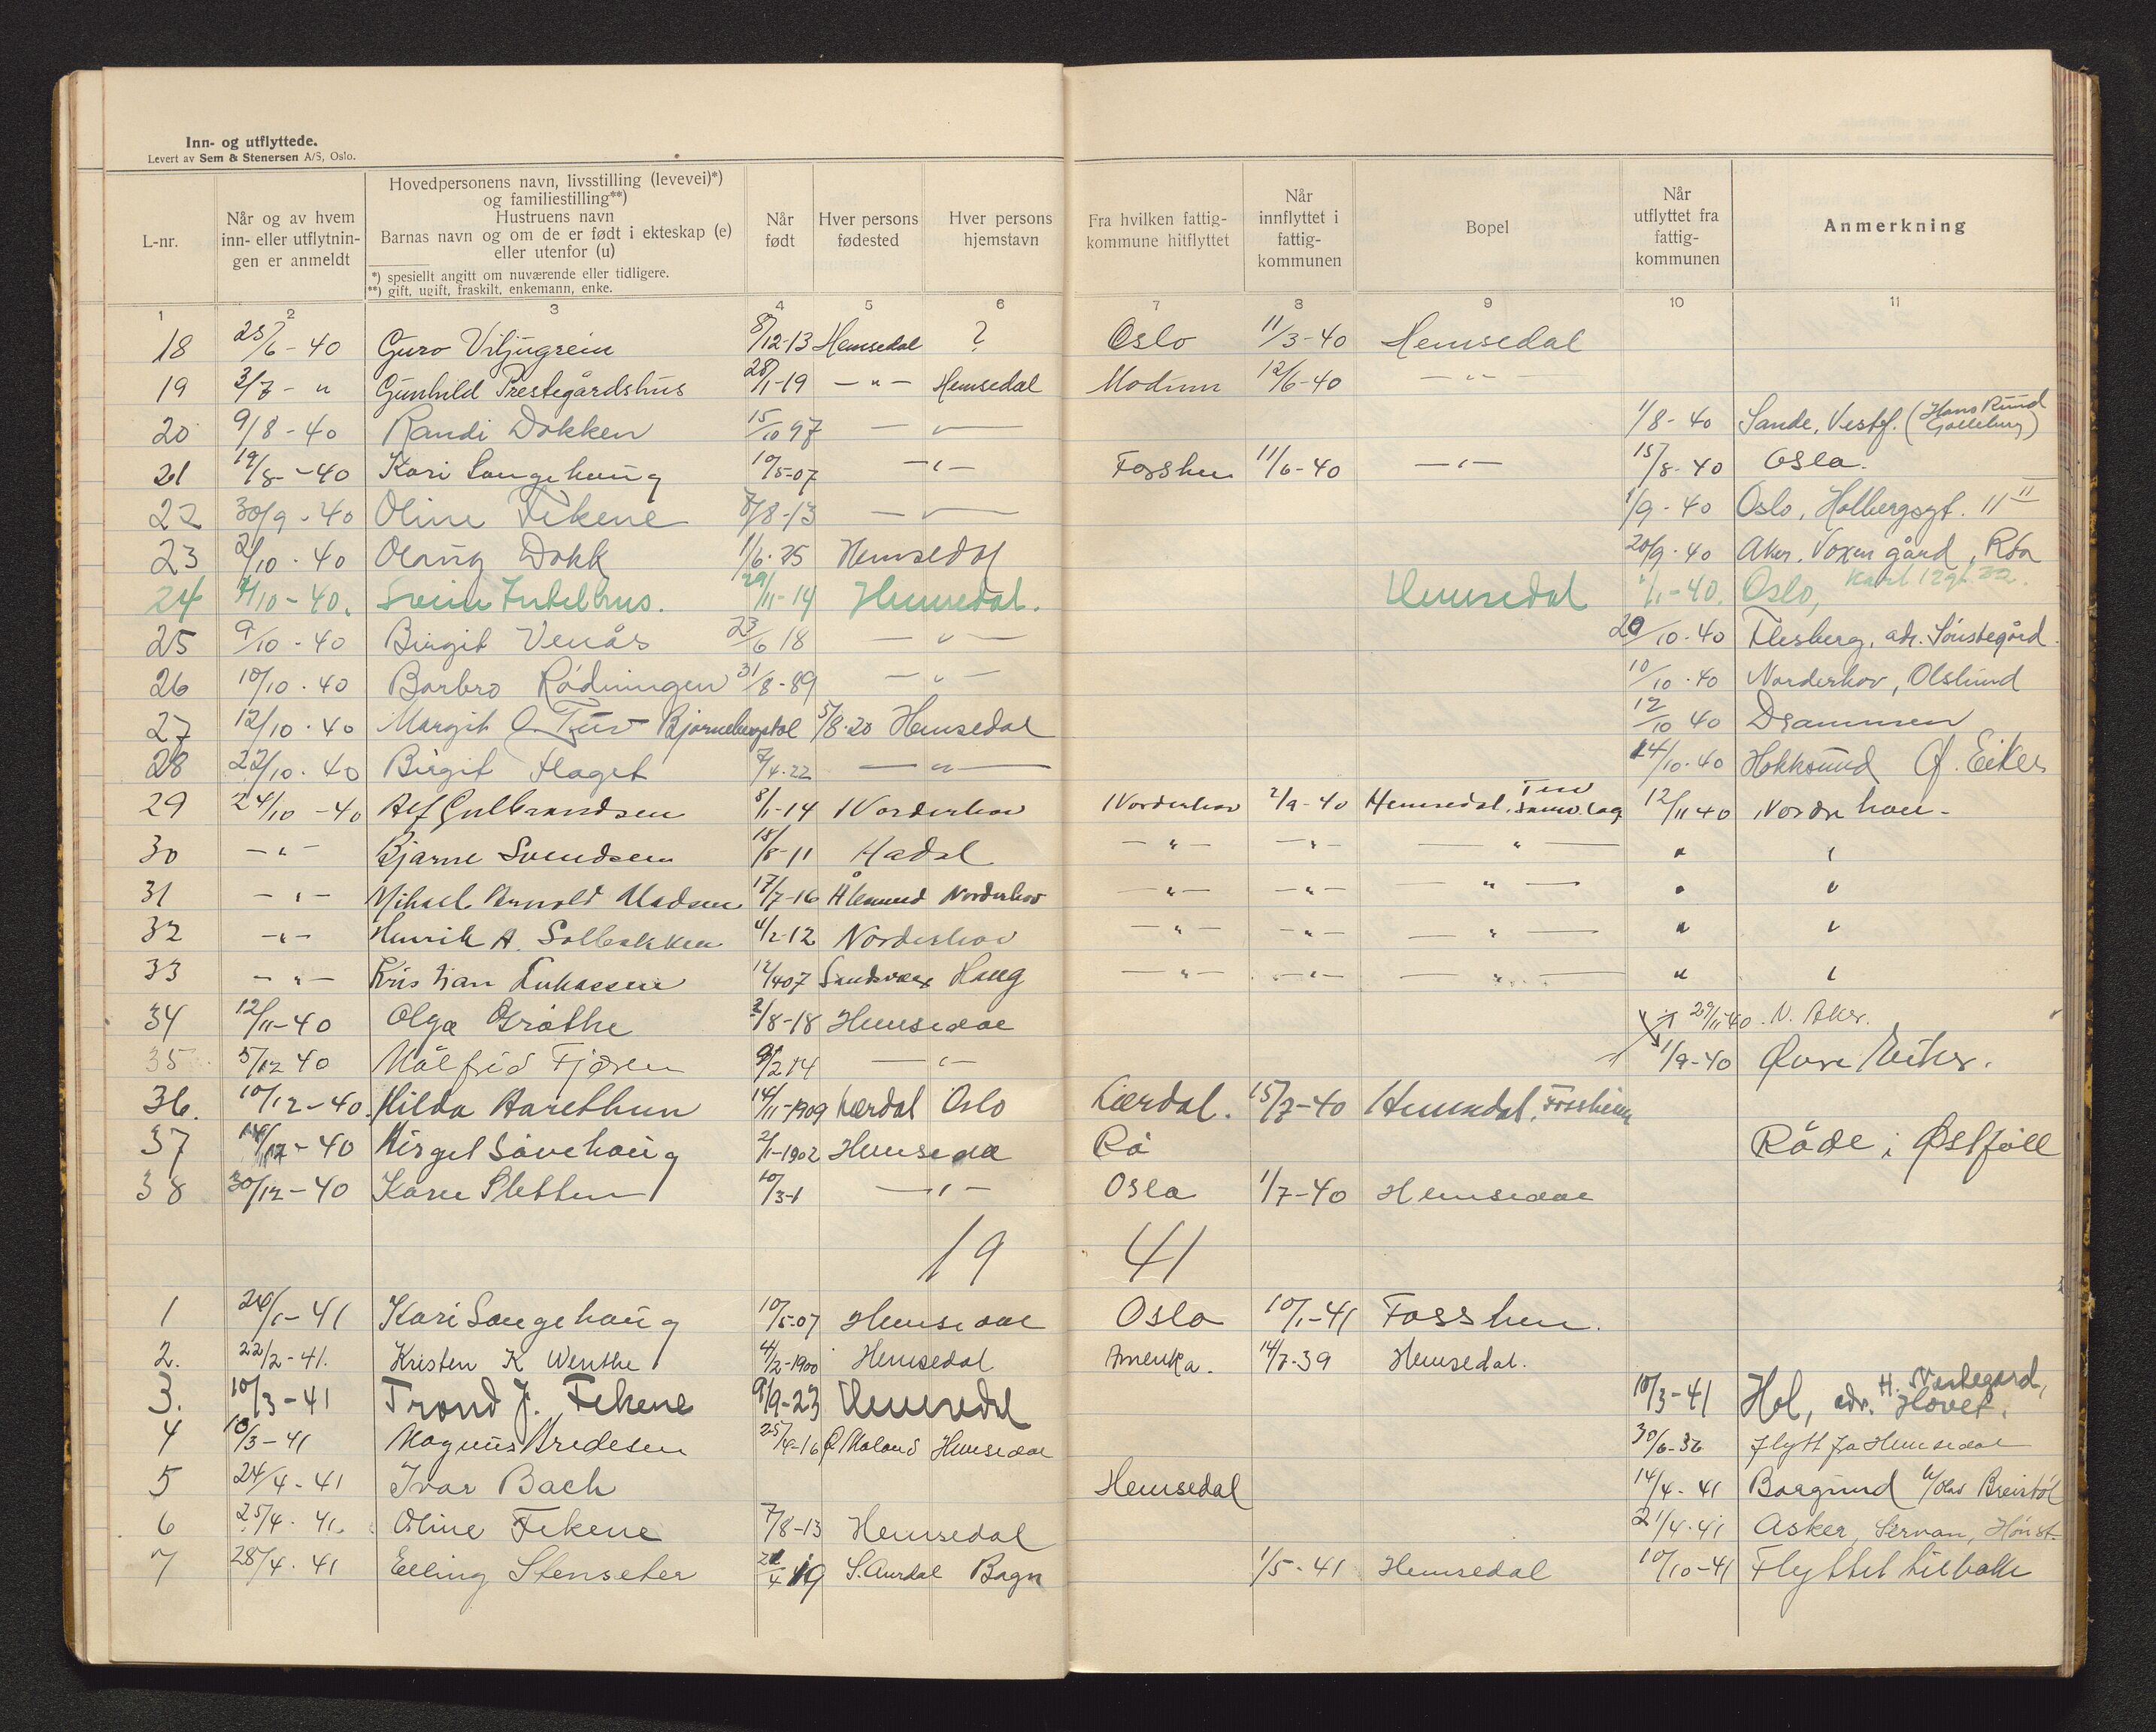 Inn- og utflyttede.
Levert av Sem & Stenersen A/S, Oslo.
L-nr.
Når og av hvem inn- eller utflytnin- gen er anmeldt
Hovedpersonens navn, livsstilling (levevei)*)
og familiestilling**)
Hustruens navn
Barnas navn og om de er født i ekteskap (e)
eller utenfor (u)
*) spesiellt angitt om nuværende eller tidligere.
**) gift, ugift, fraskilt, enkemann, enke.
Når født
Hver persons fødested
Hver persons hjemstavn
Fra hvilken fattig- kommune hitflyttet
Når innflyttet i fattig- kommunen
Bopel
Når utflyttet fra fattig- kommunen
Anmerkning
1 2 3 4 5 6 7 8 9 10 11
18 25/6-40 Guro Viljugrein 8/12-13 Hemsedal ? Oslo 11/3-40 Hemsedal
19 3/7 - " Gunhild Prestegårdshus 28/1-19 - " - Hemsedal Modum 12/6-40 - " -
20 9/8-40 Randi Dokken 15/10 97 - " - 1/8-40 Sande, Vestf. (Hans Ruud
21 19/8-40 Kari Langehaug 10/5-07 - " - Fosshen 11/6-40 - " - 15/8-40 Oslo.
22 30/9-40 Oline Fekene 7/8-13 - " - 1/9-40 Oslo, Holbergsgt. 11 II
23 2/10-40 Olaug Dokk 1/6-25 Hemsedal 20/9-40 Aker, Voxen gård, Röa
24 4/10-40. Svein 29/11-14 Hemsedal. Hemsedal 1/1-40. Oslo, Karl 12 gt. 22.
25 9/10-40 Birgit Venås 23/6 18 - " - 20/10-40 Flesberg, adr. Sönstegård.
26 10/10-40 Barbro Rödningen 31/8-89 - " - 10/10-40 Norderhov, Olslund
27 12/10-40 Margit O. Tuv Bjørnebergstøl 5/8-20 Hemsedal 12/10 40 Drammen
28 22/10-40 Birgit Flaget 7/4-22 - " - 14/10-40 Hokksund Ø. Eiker
29 24/10-40 Alf Gulbrandsen 8/1-14 Norderhov Norderhov 2/9-40 Hemsedal, Tuv Samv.lag 12/11 40 Norderhov -
30 - " - Bjarne Svendsen 18/8-11 Hadel - " - - " - - " - " "
31 - " - Mihael Arnold Madsen 17/7-16 Ålesund Norderhov - " - - " - - " - " "
32 - " - Henrik A. Solbakken 4/2-12 Norderhov - " - - " - - " - " "
33 - " - Kristian Lukassen 12/4 07 Sandsvær Haug - " - - " - - " - " "
34 12/11-40 Olga Gröthe 3/8-18 Hemsedal 29/11-40. N. Aker.
35 5/12 40 Målfrid Fjøren 9/2 14 - " - 1/9-40 Øvre Eiker.
36. 10/12-40. Hilda Aarethun 14/11-1909 Lærdal Oslo Lærdal. 15/7-40 Hemsedal, Fossheim
37 /12-40 Birgit Såvehaug 2/1-1902 Hemsedal Rå Råde i Østfoll
38 30/12-40 Kari Sletten 10/3-1 - " - Oslo 1/7-40 Hemsedal
19 41
1 24/1-41 Kari Langehaug 10/5-07 Hemsedal Oslo 10/1-41 Fosshen.
2. 22/2-41. Kristen K Wenthe 4/2-1900 Hemsedal Amerika. 14/7-39 Hemsedal.
3. 10/3-41 Trond J. Fekene 9/9-23 Hemsedal 10/3-41 Hol, adr. H. Nestegard, Hovet.
4 10/3-41 Magnus Bredesen 25/4-16 Ø. Moland Hemsedal 30/6-36 flytt fra Hemsedal
5 24/4-41 Ivar Bach Hemsedal 14/4-41 Borgund b/Olav Breistöl
6 25/4-41. Oline Fekene 7/8-13 Hemsedal 21/4-41 Asker, Hönst.
7 28/4-41 Elling Stenseter 21/4 19 S. Aurdal Bagn 1/5-41 Hemsedal 10/10-41 Flyttet tilbake